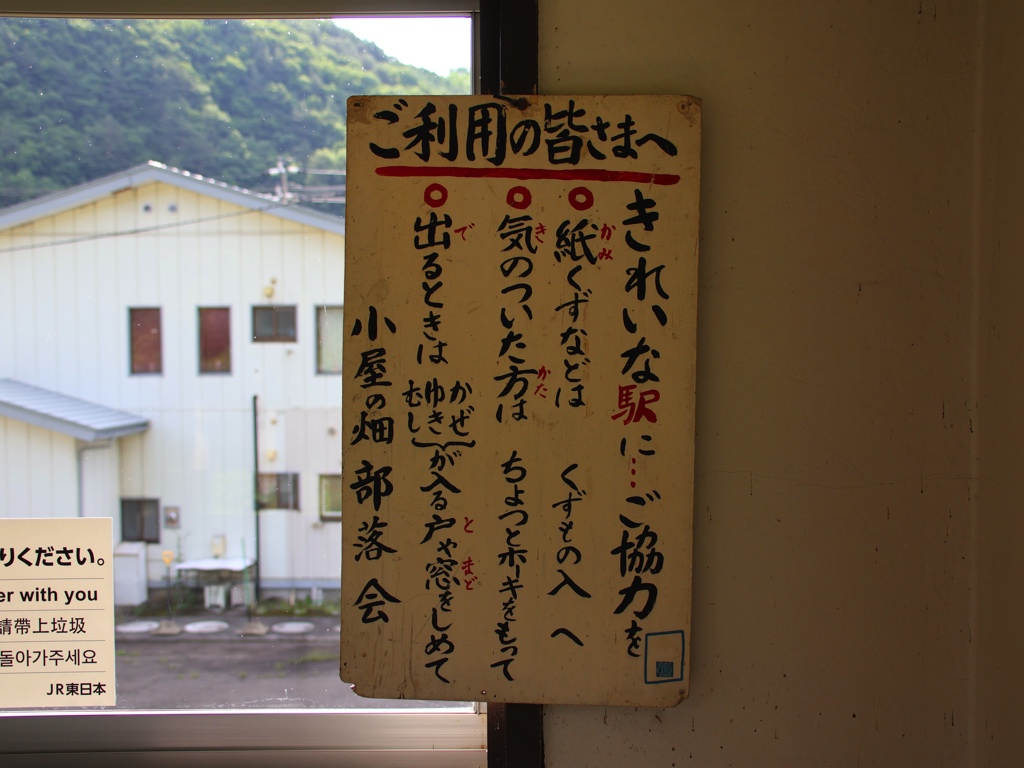 ご利用の皆さまへ
きれいな駅に…ご協力を
紙くずなどは くずもの入へ
かみ
気のついた方は ちょっとホーキをもって
きい
かた
出るときは かぜ ゆき むし が入る戸や窓をしめて
で
と
まど
小屋の畑部落会
りください。
er with you
請帶上垃圾
돌아가주세요
JR東日本